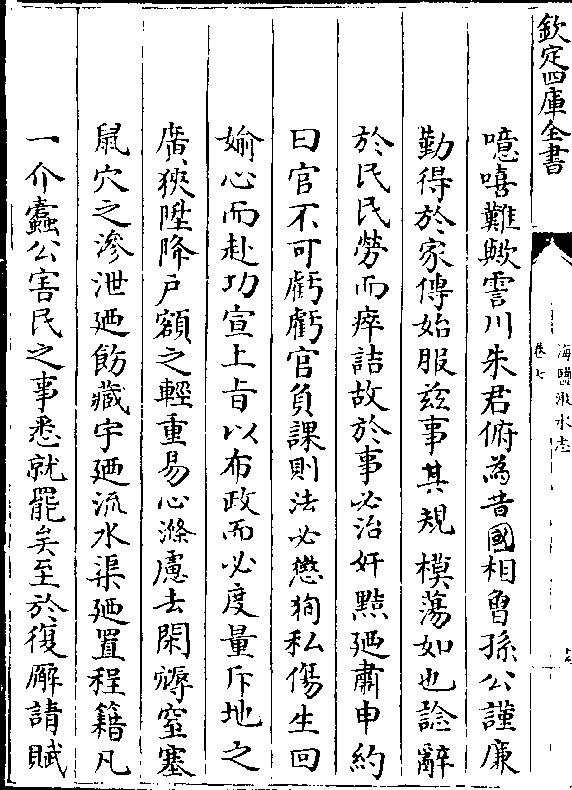 欽定四庫全書
海鹽澉水志
卷七
噫嘻難歟霅川朱君俯為昔國相魯孫公謹廉
勤得於家傳始服兹事其規模蕩如也諗辭
於民民勞而瘁詰故於事必治奸黠廼肅申約
曰官不可虧虧官負課則法必懲狥私傷生回
婾心而赴功宣上旨以布政而必度量斥地之
廣狹陞降户額之輕重易心滌慮去閑褥窒塞
鼠穴之滲泄廼飭藏宇廼流水渠廼置程籍凡
一介蠧公害民之事悉就罷矣至於復廨請賦